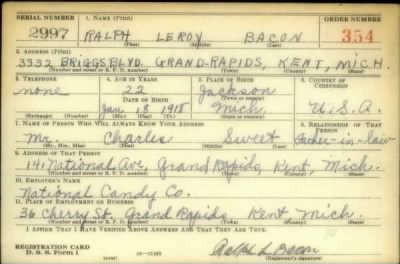 SERIAL NUMBER 1. NAME (Print) ORDER NUMBER
2997 RALPH LEROY BACON 354
(First) (Middle) (Last)
2. ADDRESS (Print)
3332 BRIGGS BLVD. GRAND-RAPIDS, KENT, MICH.
(Number and street or R. F. D. number) (Town) (County) (State)
3. TELEPHONE 4. AGE IN YEARS 5. PLACE OF BIRTH 6. COUNTRY OF CITIZENSHIP
none 22 Jackson
DATE OF BIRTH (Town or county)
Jan. 18 1918 Mich. U.S.A.
(Exchange) (Number) (Mo.) (Day) (Yr.) (State or country)
7. NAME OF PERSON WHO WILL ALWAYS KNOW YOUR ADDRESS 8. RELATIONSHIP OF THAT PERSON
Mr. Charles Sweet father-in-law
(Mr., Mrs., Miss) (First) (Middle) (Last)
9. ADDRESS OF THAT PERSON
141 National Ave, Grand Rapids, Kent, Mich.
(Number and street or R. F. D. number) (Town) (County) (State)
10. EMPLOYER'S NAME
National Candy Co.
11. PLACE OF EMPLOYMENT OR BUSINESS
36 Cherry St. Grand Rapids Kent Mich.
(Number and street or R. F. D. number) (Town) (County) (State)
I AFFIRM THAT I HAVE VERIFIED ABOVE ANSWERS AND THAT THEY ARE TRUE.
REGISTRATION CARD
D. S. S. Form 1 (over) Ralph L Bacon
(Registrant's signature)